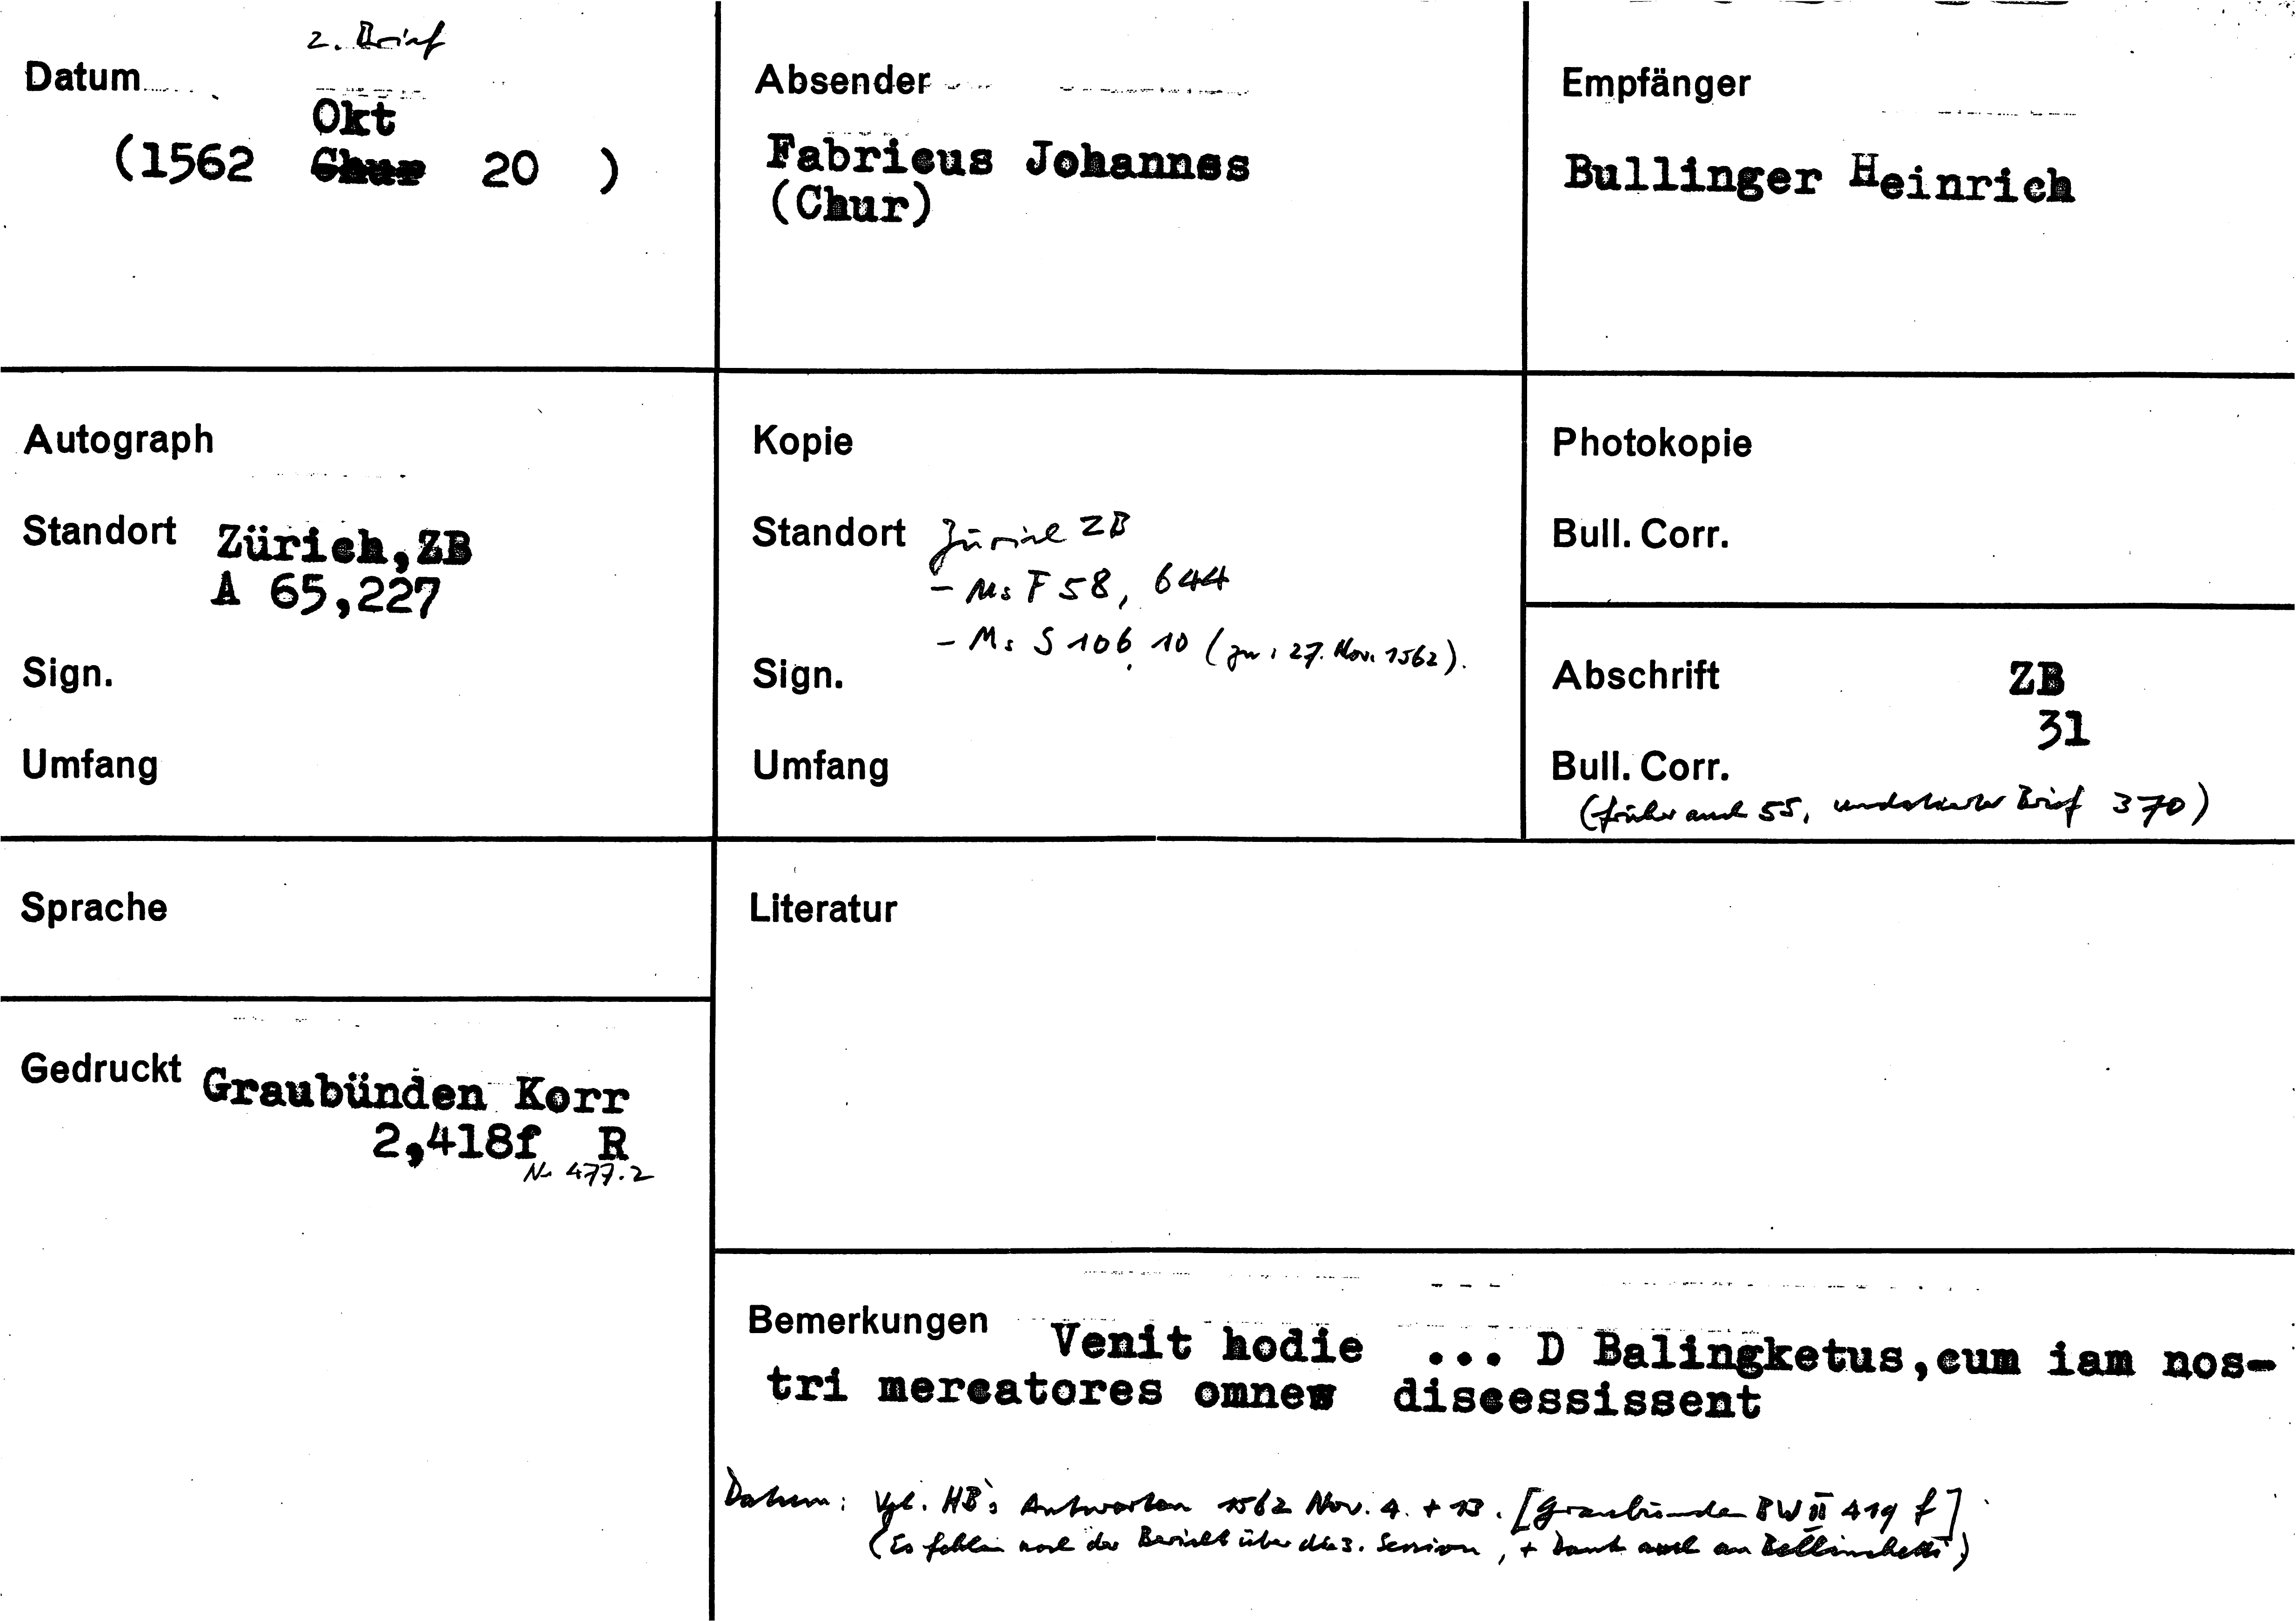 2. Brief
Datum
Okt
(1562 Chur 20 )
Absender
Fabricus Johannes
(Chur)
Empfänger
Bullinger Heinrich
Autograph
Standort Zürich,ZB
A 65,227
Sign.
Umfang
Kopie
Standort Zürich ZB
- Ms F 58, 644
- Ms S 106, 10 (zu: 27. Nov. 1562).
Sign.
Umfang
Photokopie
Bull. Corr.
Abschrift ZB
31
Bull. Corr.
(früher auch 55, undatierter Brief 370)
Sprache
Gedruckt Graubünden Korr
2,418f R
Nr. 477.2
Literatur
Bemerkungen Venit hodie ... D Balingketus,cum iam nos-
tri mercatores omnes discessissent
Datum: Vgl. HB's Antworten 1562 Nov. 4. + 13. [Graubünden BW II 419 f]
(Es fehlen noch der Bericht über die 3. Session, + Dank auch an Bellinchetti)